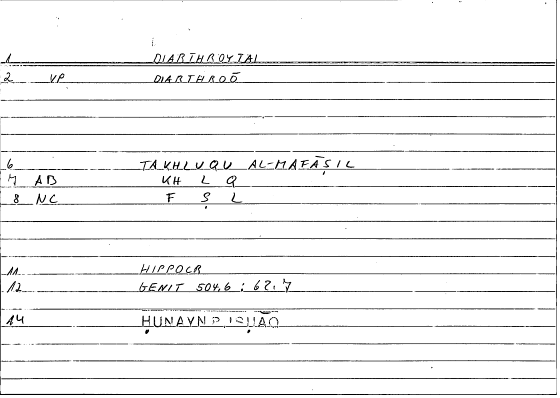 1 DIARTHROYTAI
2 VP DIARTHROŌ
6 TAKHLUQU AL-MAFĀṢIL
7 AB KH L Q
8 NC F Ṣ L
11 HIPPOCR
12 GENIT 504,6 : 62.7
14 ḤUNAYN B ISḤĀQ